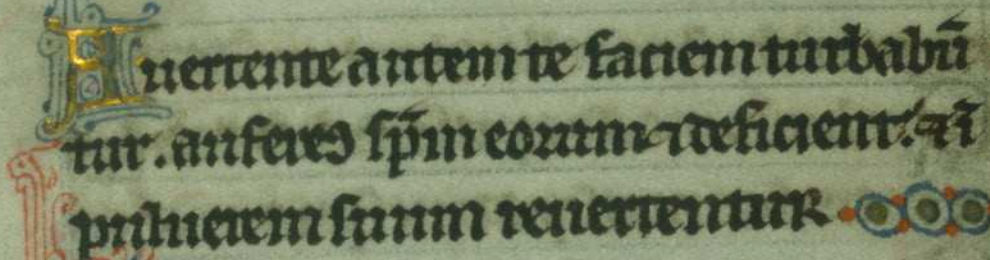 Auertente autem te faciem turbabū
tur. auferes sp̄m eorum ⁊ deficient: ⁊ ī
puluerem suum reuertentur